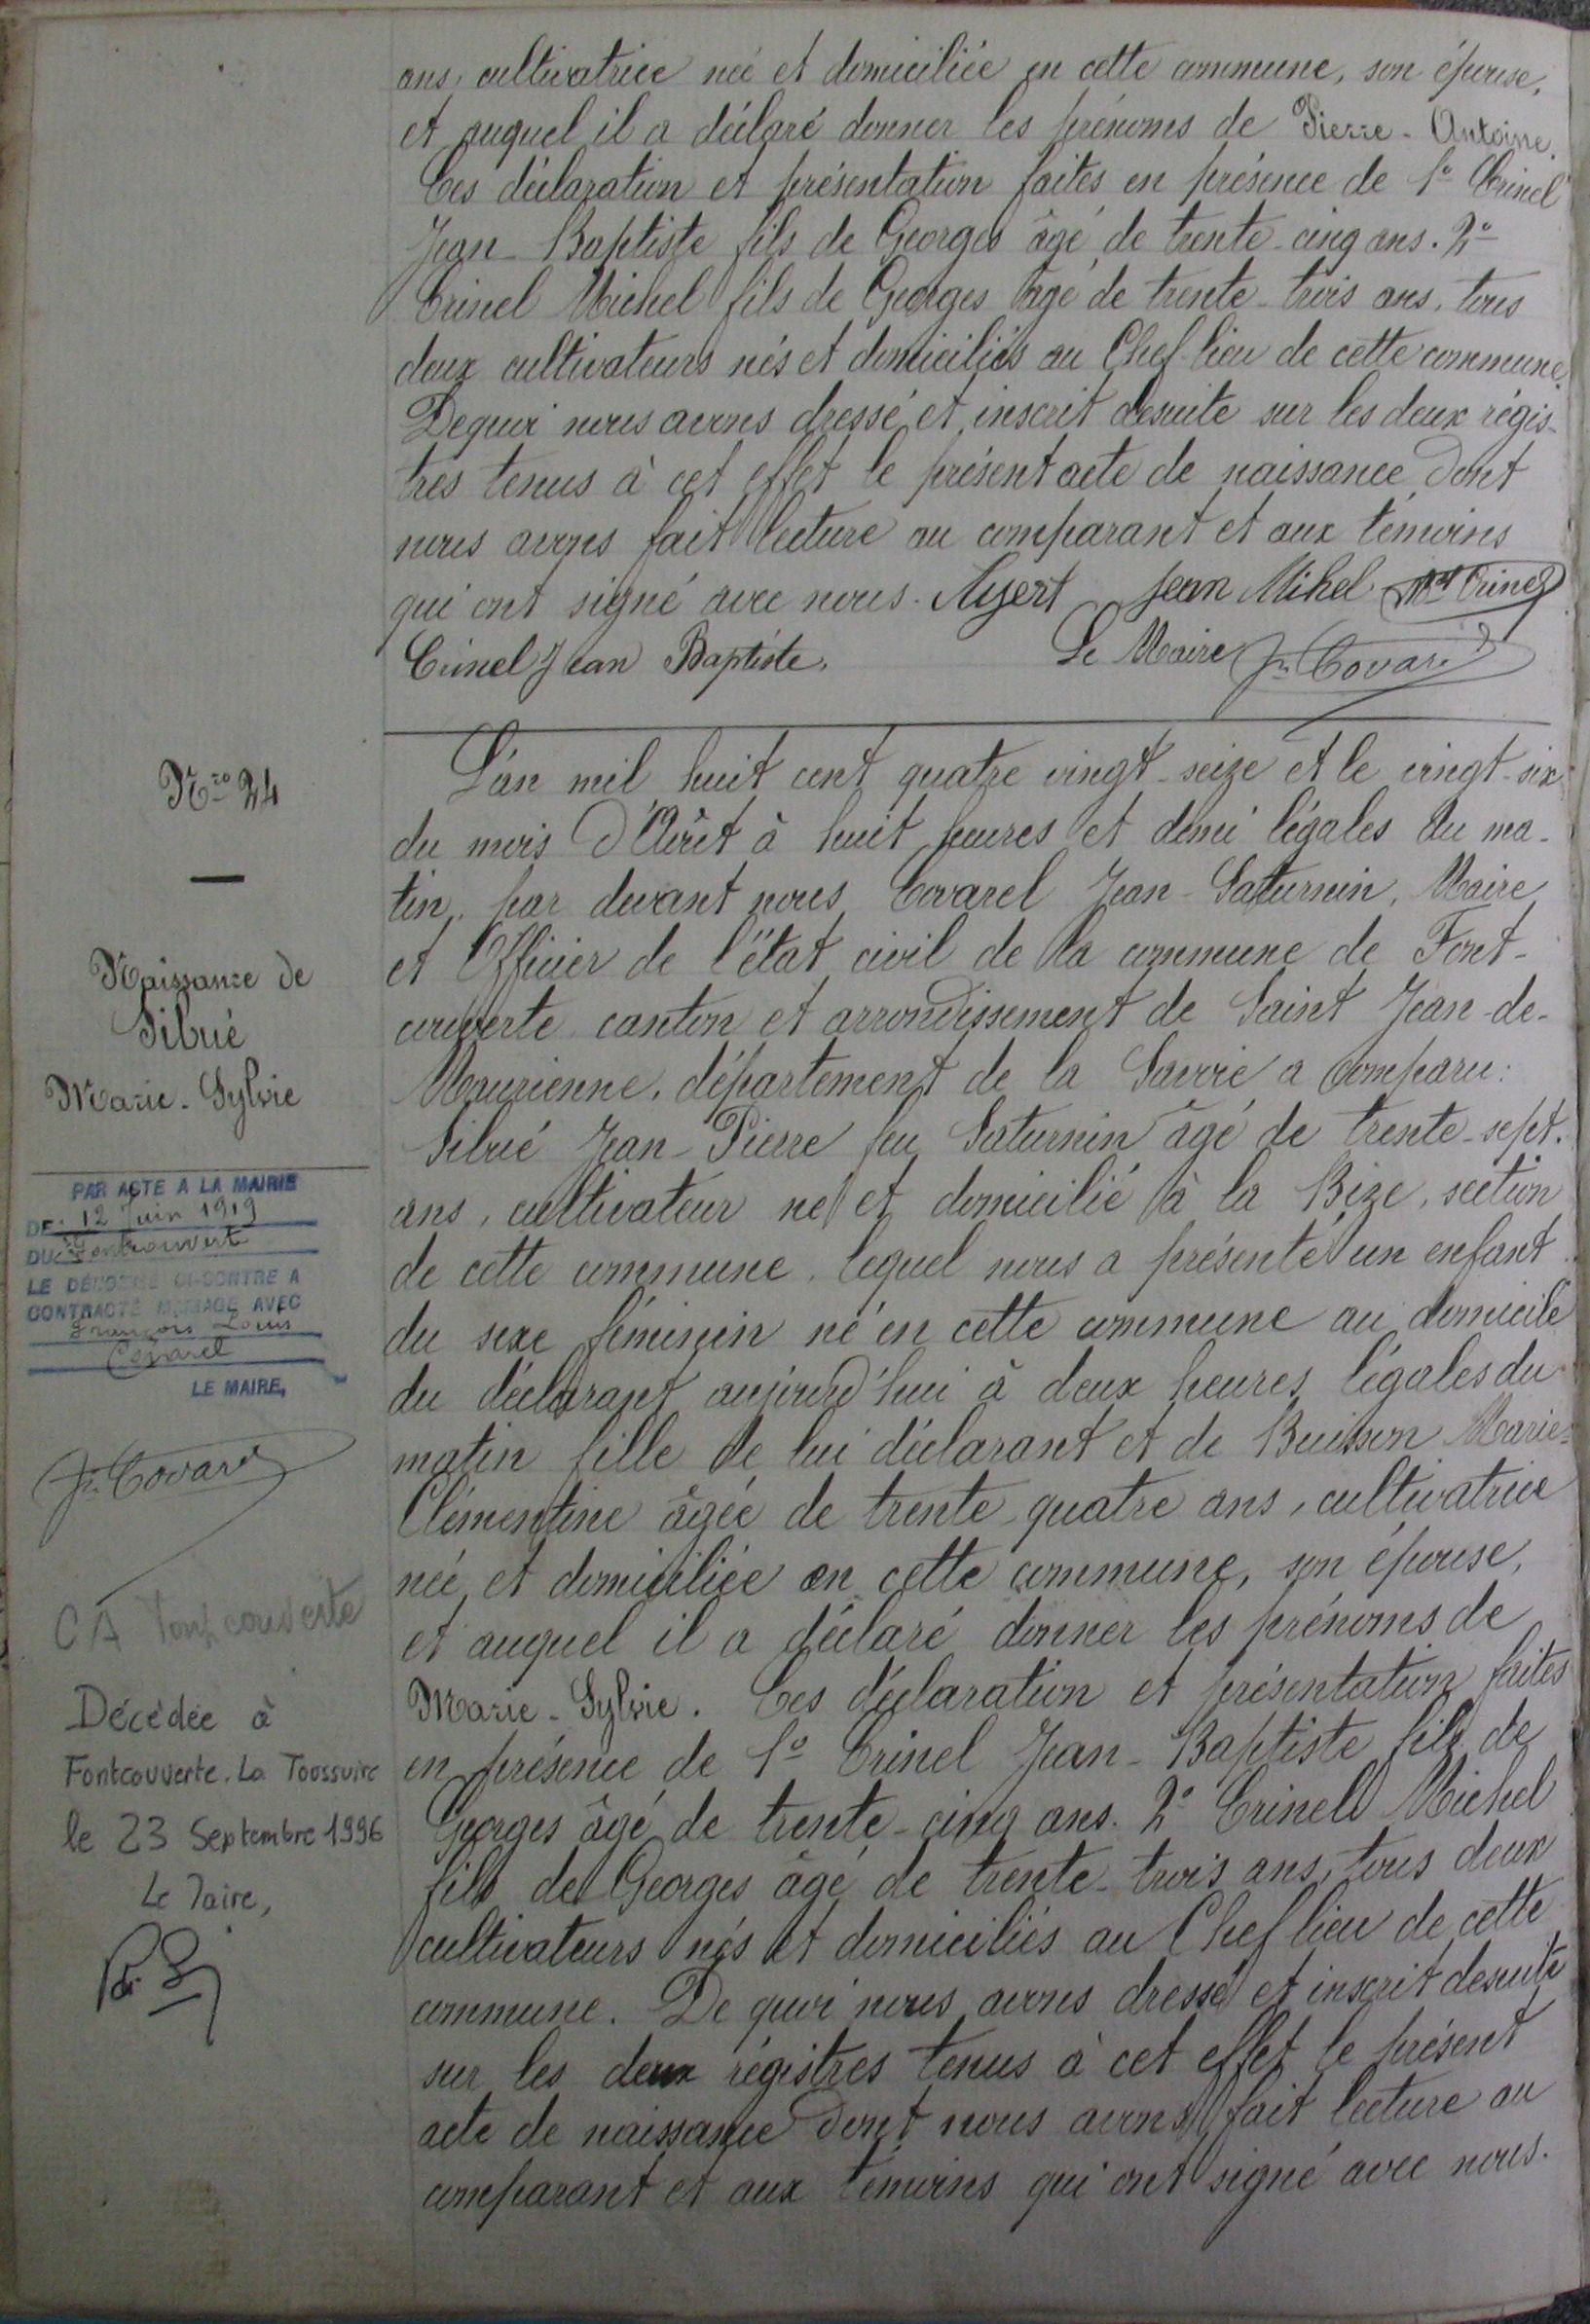 ans, cultivatrice née et domiciliée en cette commune, son épouse,
et auquel il a déclaré donner les prénoms de Pierre-Antoine.
Ces déclaration et présentation faites en présence de 1° Crinel
Jean-Baptiste fils de Georges âgé de trente-cinq ans. 2°
Crinel Michel fils de Georges âgé de trente-trois ans, tous
deux cultivateurs nés et domiciliés au Chef-lieu de cette commune.
Dequoi nous avons dressé et inscrit desuite sur les deux régis-
tres tenus à cet effet le présent acte de naissance dont
nous avons fait lecture au comparant et aux témoins
qui ont signé avec nous. Jean Mihel Crinel
Crinel Jean Baptiste. Le Maire Jn Covarel
Nro 24
Naissance de
Sibué
Marie-Sylvie
PAR ACTE A LA MAIRIE
DE: 12 Juin 1919
DU: Fontcouvert
LE DÉNOMMÉ CI-CONTRE A
CONTRACTÉ MARIAGE AVEC
François Louis
Covarel
LE MAIRE,
Jn Covarel
CA Fontcouverte
Décédée à
Fontcouverte. La Toussuire
le 23 Septembre 1996
Le Maire,
L'an mil huit cent quatre vingt-seize et le vingt-six
du mois d'Août à huit heures et demi légales du ma-
tin, par devant nous Covarel Jean-Saturnin, Maire
et Officier de l'état civil de la commune de Font-
couverte canton et arrondissement de Saint Jean-de-
Maurienne, département de la Savoie a comparu:
Sibué Jean-Pierre feu Saturnin âgé de trente-sept.
ans, cultivateur né et domicilié à la Bize, section
de cette commune, lequel nous a présenté un enfant
du sexe féminin né en cette commune au domicile
du déclarant aujourd'hui à deux heures légales du
matin fille de lui déclarant et de Buisson Marie-
Clémentine âgée de trente-quatre ans, cultivatrice
née et domiciliée en cette commune, son épouse,
et auquel il a déclaré donner les prénoms de
Marie-Sylvie. Ces déclaration et présentation faites
en présence de 1° Crinel Jean-Baptiste fils de
Georges âgé de trente-cinq ans. 2° Crinel Michel
fils de Georges âgé de trente-trois ans, tous deux
cultivateurs nés et domiciliés au Chef lieu de cette
commune. De quoi nous avons dressé et inscrit desuite
sur les deux régistres tenus à cet effet le présent
acte de naissance dont nous avons fait lecture au
comparant et aux témoins qui ont signé avec nous.